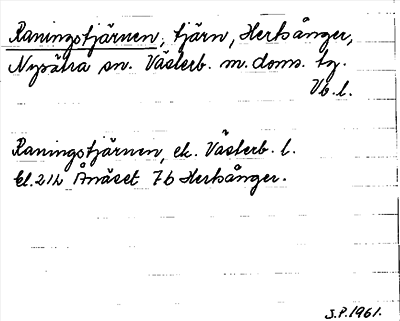 Raningstjärnen, tjärn, Herksånger,
Nysätra sn. Västerb. m. doms. tg.
Vb. l.
Raningstjärnen, ek. Västerb. l.
bl. 21L Ånäset 7b Herksånger.
J.P. 1961.